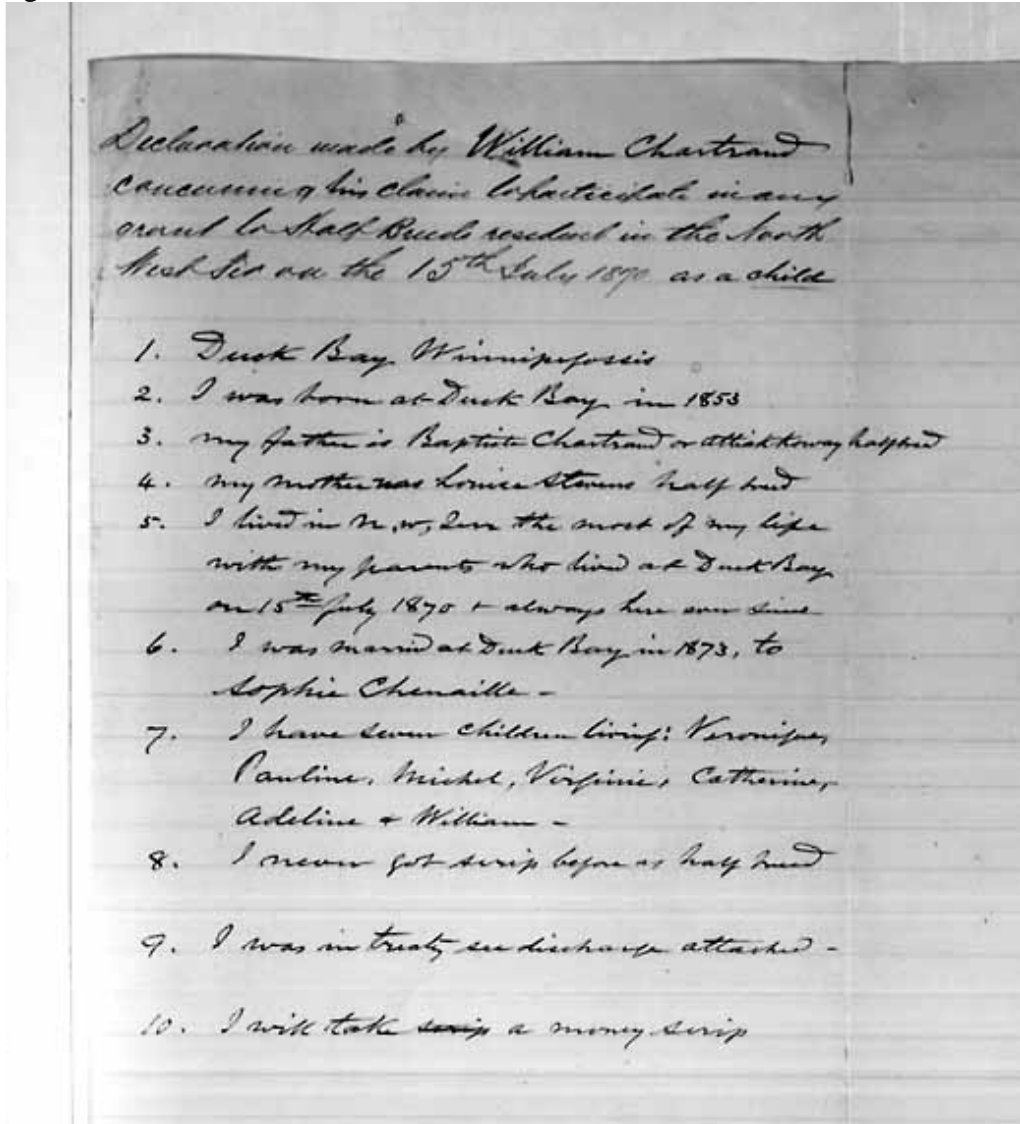 Declaration made by William Chartrand
concerning his claim to participate in any
grant to Half Breeds resident in the North
West Ter on the 15th July 1870 as a child
1. Duck Bay Winnipegossis
2. I was born at Duck Bay in 1853
3. my father is Baptiste Chartrand or halfbreed
4. my mother was Louise Stevens half breed
5. I lived in N.W. Terr the most of my life
with my parents who lived at Duck Bay
on 15th July 1870 + always here ever since
6. I was married at Duck Bay in 1873, to
Sophie Chenaille -
7. I have seven children living: Veronique,
Pauline, Michel, Virginie, Catherine,
Adeline + William -
8. I never got scrip before as half breed
9. I was in treaty see discharge attached -
10. I will take scrip a money scrip